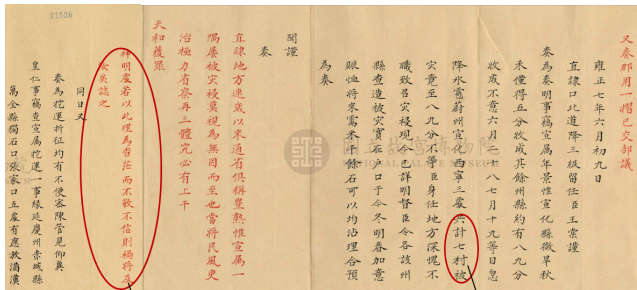 又奏那用一摺已交部議
雍正七年六月初九日
直隸口北道降三級留任臣王棠謹
奏為奏明事竊宣属年景惟宣化縣微旱秋
禾僅得五分收成其餘州縣約有八九分
收成不意六月二十八七月十九等日忽
降氷雹蔚州宣化西寧三處共計七村被
灾竟至八九分不等臣身任地方深愧不
職致召灾祲現今已詳明督臣令各該州
縣查造被灾實在戶口于今冬明春加意
賑恤將來需米千餘石可以均沾理合預
為奏
聞謹
奏
直隸地方連歲以來通省俱稱豊熟惟宣属一
隅屢被灾祲莫視為無因而至也當將民風吏
治極力省察再三體究必有上干
天和獲罪
神明處若以此理為杳茫而不敬不信則禍將及
汝矣誌之
同日又
奏為挖運折征均有不便密陳管見仰冀
皇仁事竊查宣属挖運一事緣延慶州赤城縣
萬全縣獨石口張家口五處有應放滿漢
21526